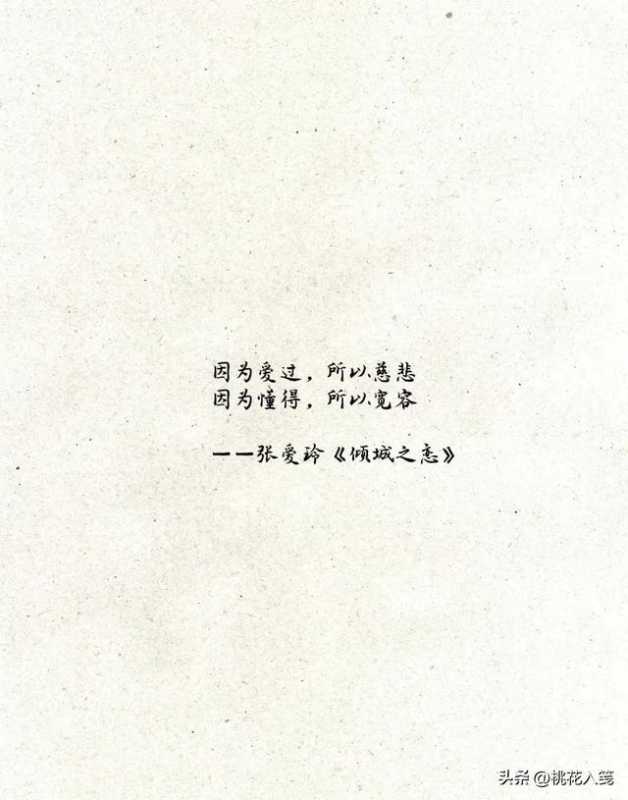 因为爱过，所以慈悲
因为懂得，所以宽容
——张爱玲《倾城之恋》
头条 @桃花入笺